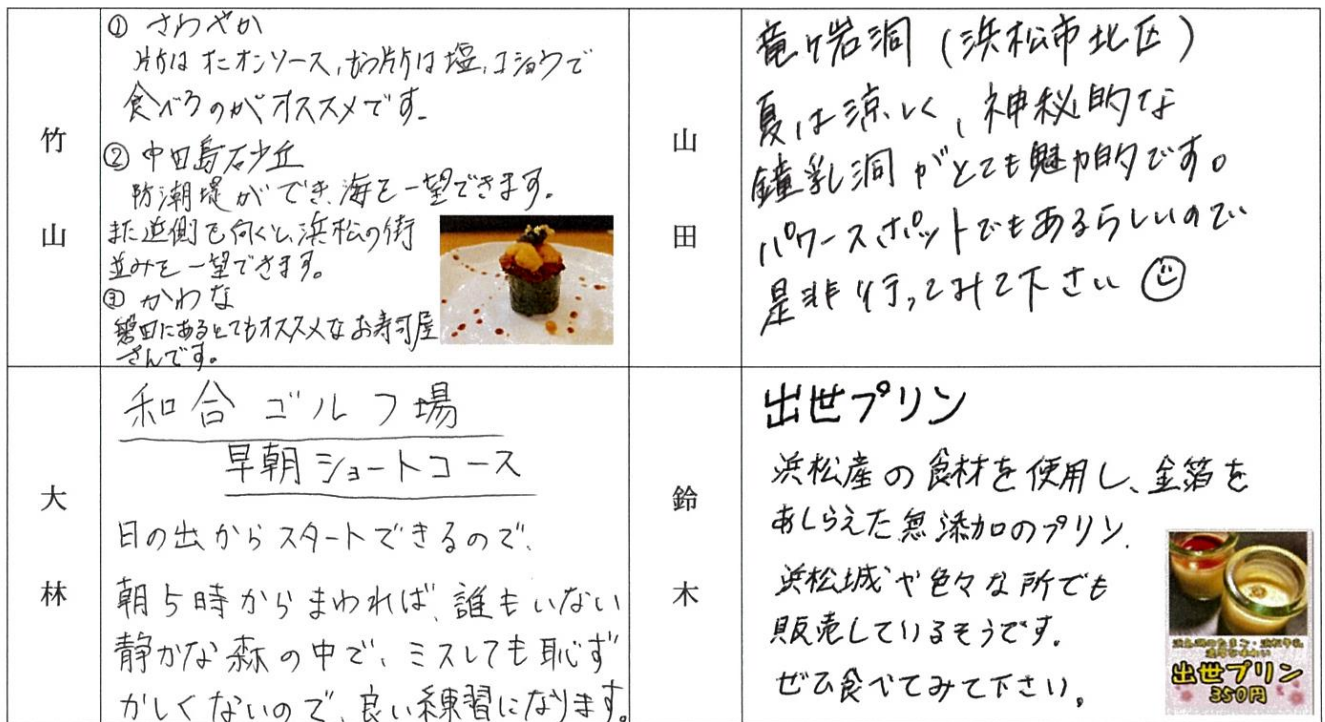 竹山
① さわやか
片方はオニオンソース、もう片方は塩、コショウで
食べるのがオススメです。
② 中田島砂丘
防潮堤ができ、海を一望できます。
また逆側を向くと、浜松の街
並みを一望できます。
③ かわな
磐田にあるとてもオススメなお寿司屋
さんです。
山田
竜ヶ岩洞 (浜松市北区)
夏は涼しく、神秘的な
鐘乳洞がとても魅力的です。
パワースポットでもあるらしいので
是非行ってみて下さい
大林
和合ゴルフ場
早朝ショートコース
日の出からスタートできるので、
朝5時からまわれば、誰もいない
静かな森の中で、ミスしても恥ず
かしくないので、良い練習になります。
鈴木
出世プリン
浜松産の食材を使用し、金箔を
あしらえた無添加のプリン。
浜松城や色々な所でも
販売しているそうです。
ぜひ食べてみて下さい。
出世プリン
350円